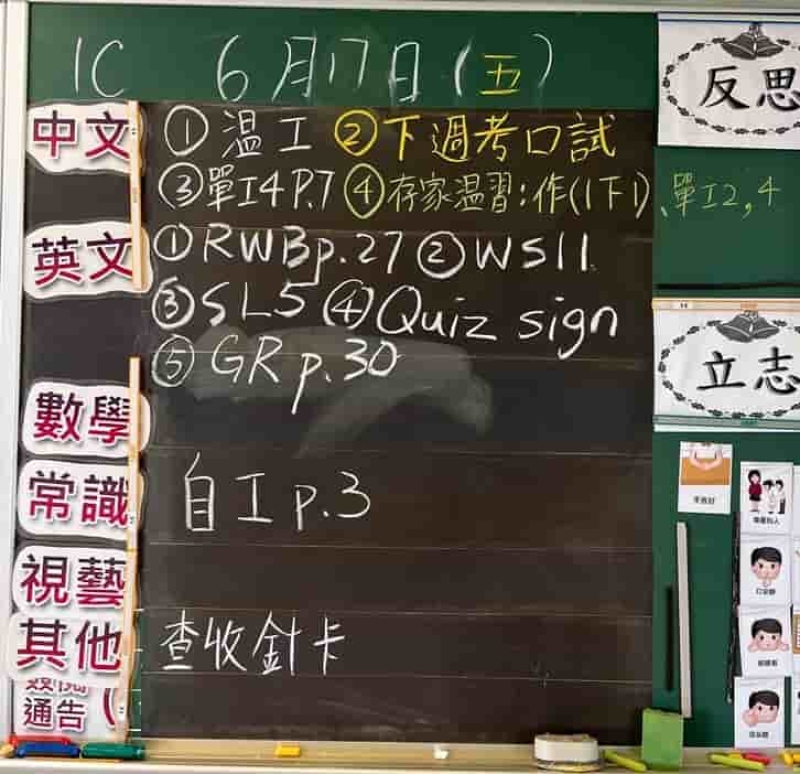 1C 6月17日(五)
反思
中文 ①温工 ②下週考口試
③單工4P.7 ④存家温習:作(1下1)、單工2,4
英文 ①RWBp.27 ②WS11
③SL5 ④Quiz sign
⑤GR p.30
立志
數學
常識 自工p.3
視藝
其他 查收針卡
通告(